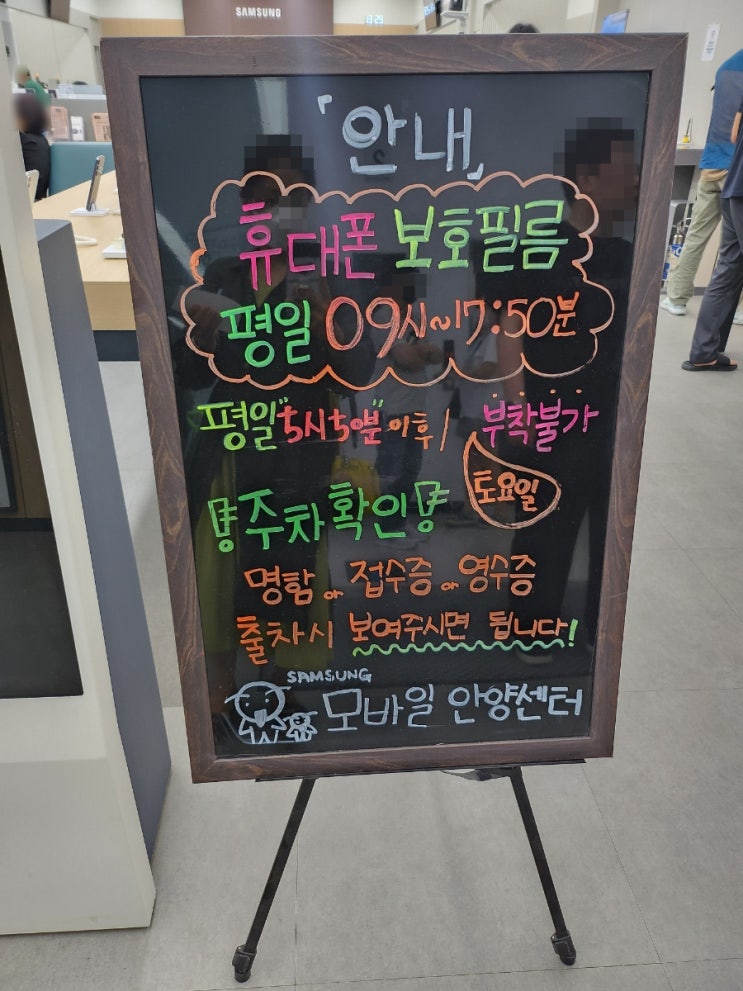 SAMSUNG
「안내」
휴대폰 보호필름
평일 09시~17:50분
평일 "5시50분" 이후 / 부착불가
토요일
주차확인
명함 or 접수증 or 영수증
출차시 보여주시면 됩니다!
SAMSUNG
모바일 안양센터